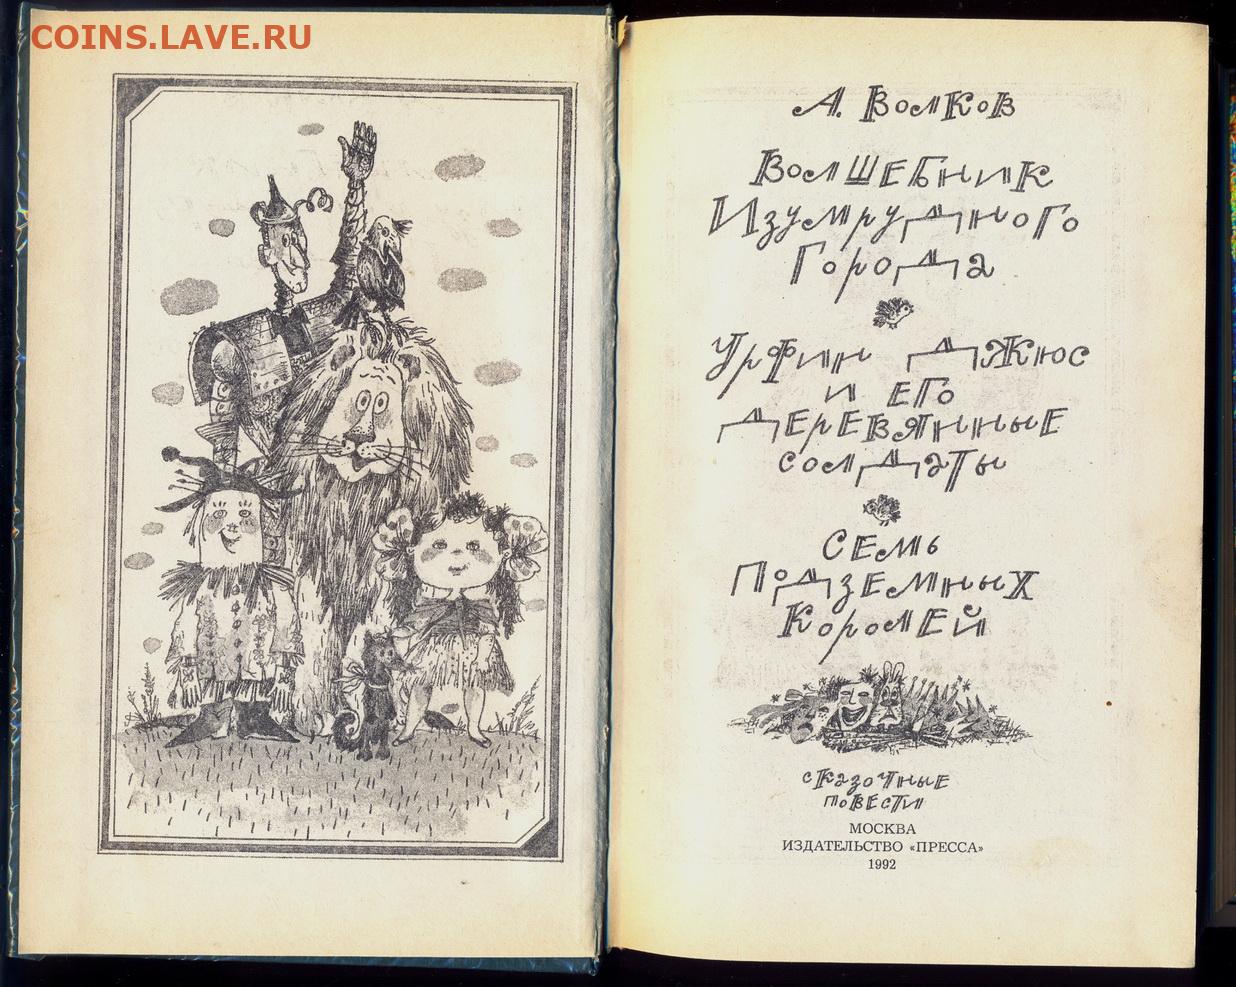 COINS.LAVE.RU
А. Волков
Волшебник
Изумрудного
Города
Урфин Джюс
и его
деревянные
солдаты
Семь
Подземных
Королей
сказочные
повести
МОСКВА
ИЗДАТЕЛЬСТВО «ПРЕССА»
1992